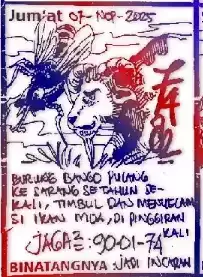 Jum'at 07-Nop-2005
BURUNG BANGO PULANG
KE SARANG SETAHUN SE-
KALI, TIMBUL DAN MENYELAM
SI IKAN MDA, DI PINGGIRAN
KALI
JAGA2 : 90-01-74
BINATANGNYA JADI INCARAN